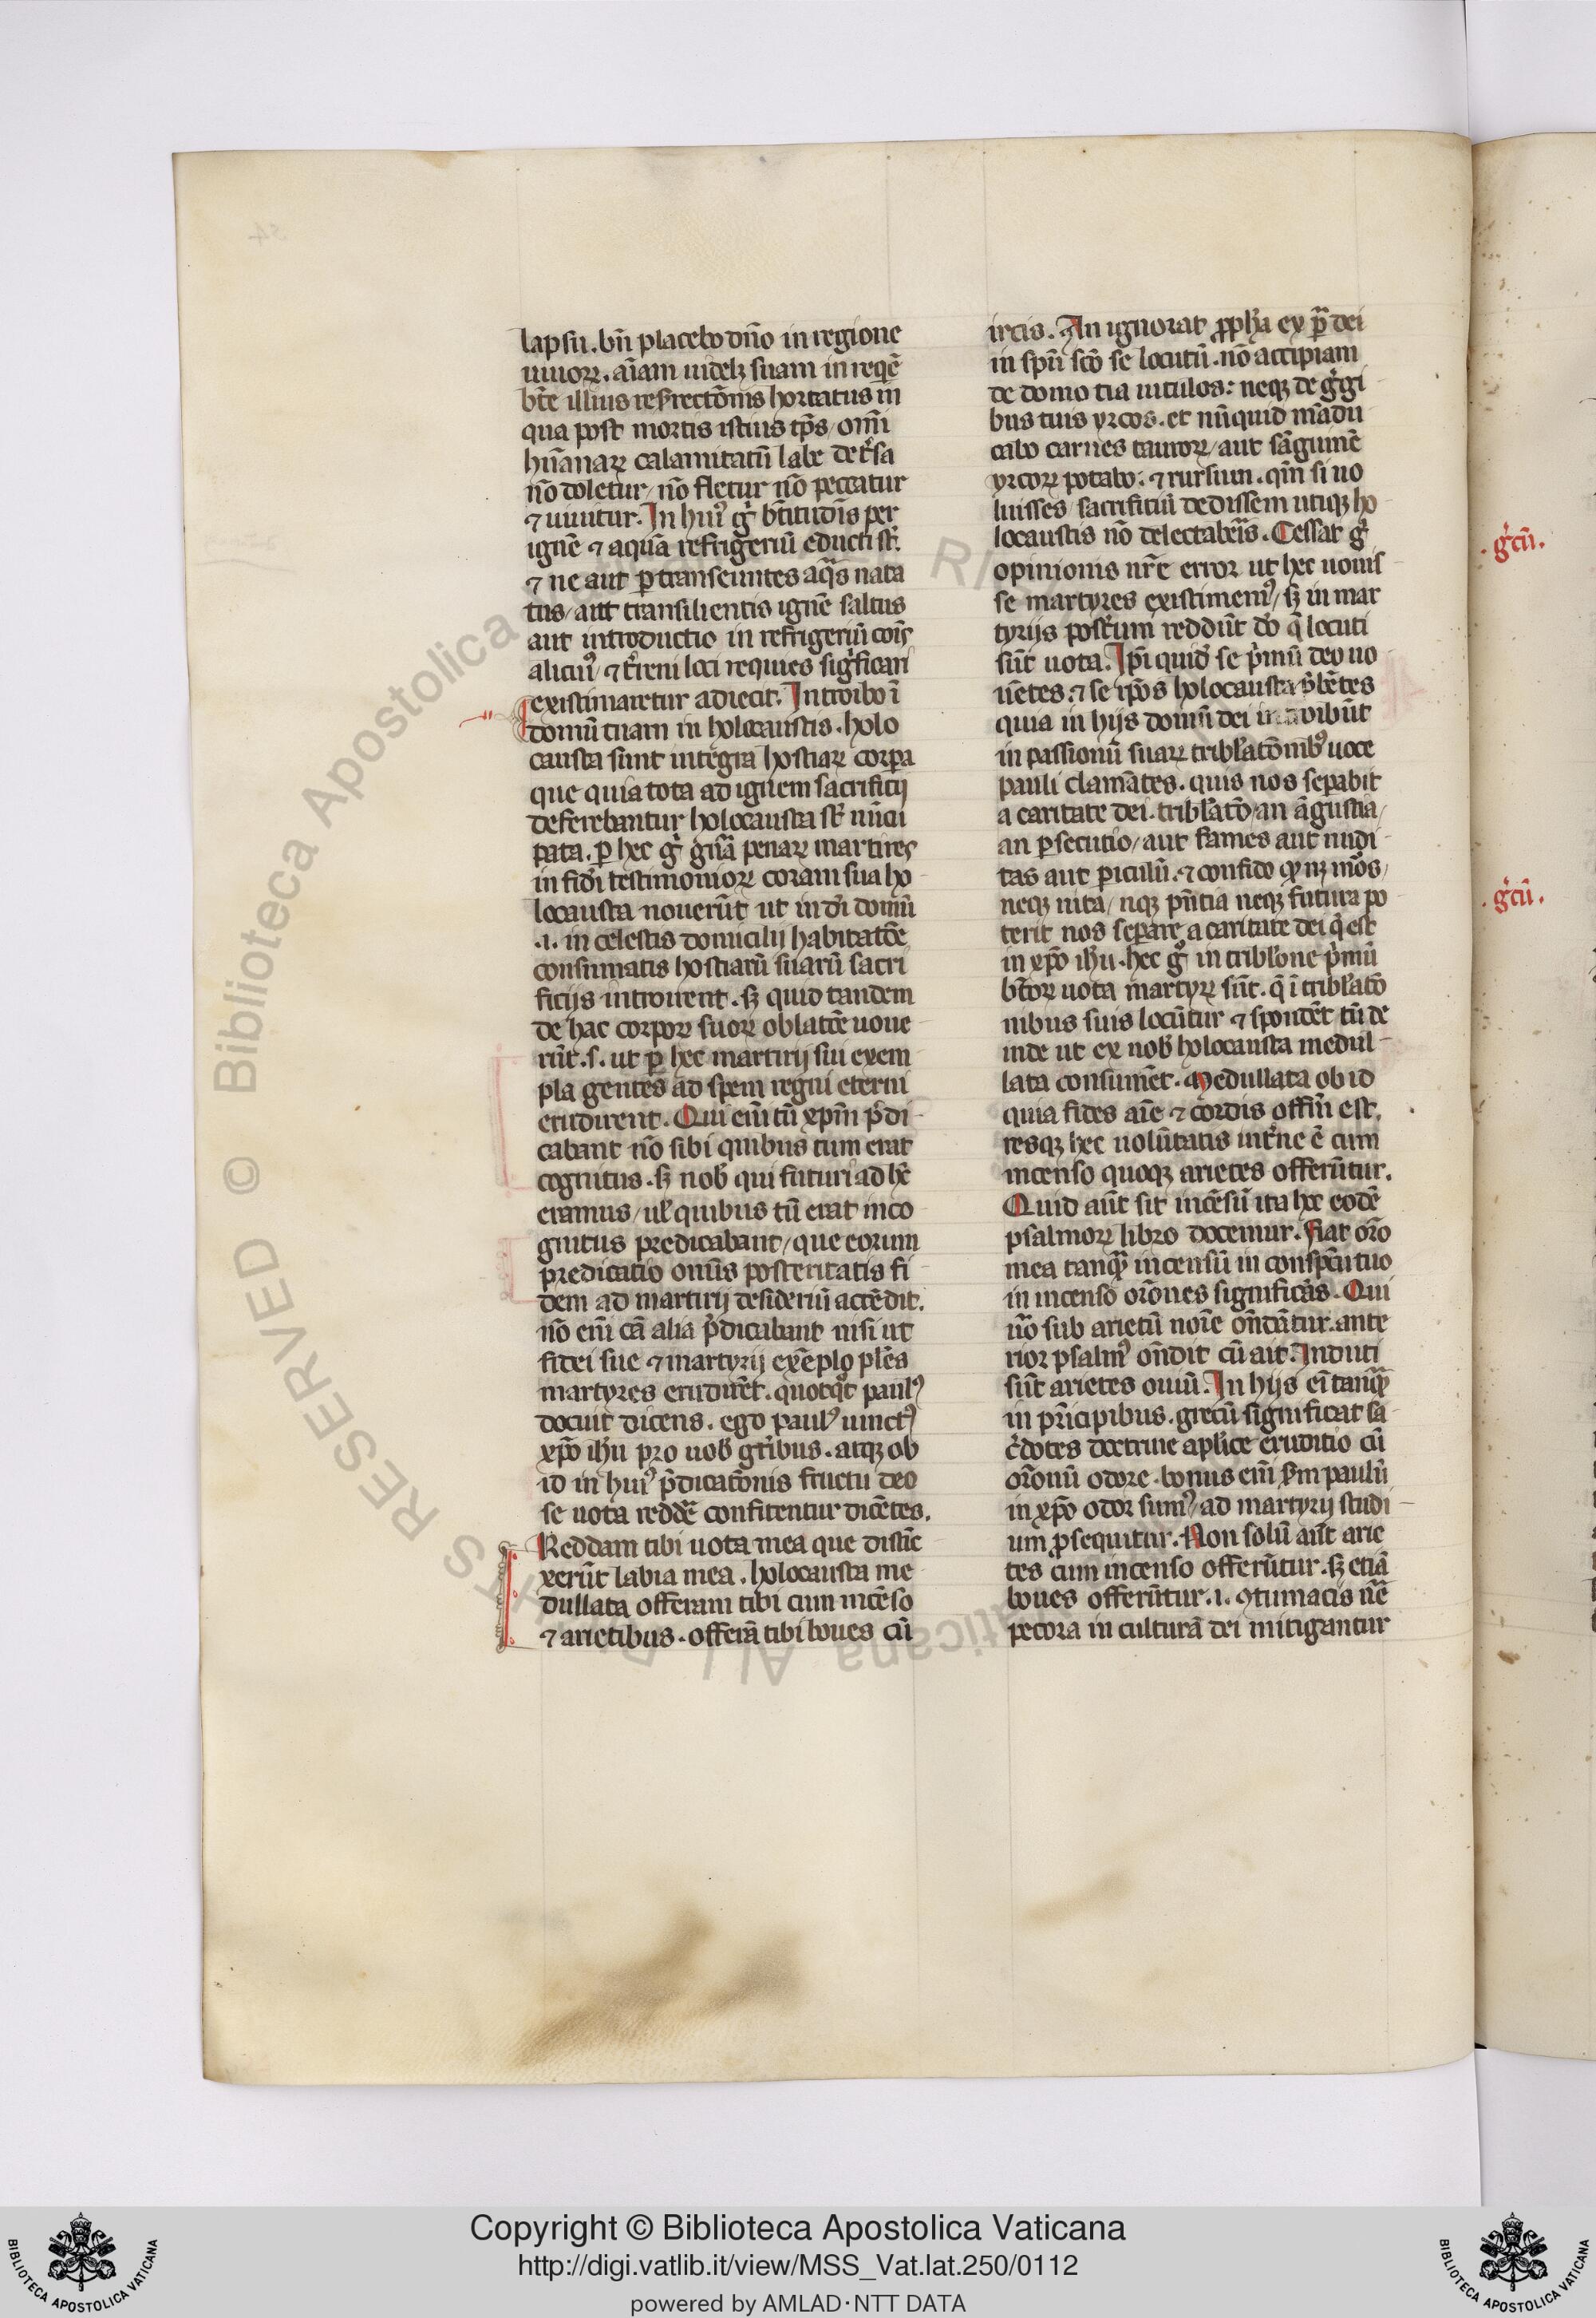 lapsu. bn̄ placebo dn̄o in regione
uiuoꝝ. aīam uidelꝫ suam in reqē
bt̄e illius resrectōnis hortatus in
qua post mortis istius tp̄s/ om̄i
hūanaꝝ calamitatū labe det̾sa
nō doletur/ nō fletur nō peccatur
⁊ uiuitur. In huiꝰ gͦ bt̄itudīs per
ignē ⁊ aquā refrigeriū educti st̄.
⁊ ne aut ꝑtranseuntes aq̄s nata
tus/ aut transilientis ignē saltus
aut introductio in refrigeriū cois̄
alicuiꝰ/ ⁊ t̾reni loci requies sigͥficari
existimaretur adiecit. Introibo ī
domū tuam in holocaustis. holo
causta sunt integra hostiaꝝ corꝑa
que quia tota ad ignem sacrificij
deferebantur holocausta st̄ nūcu
pata. ꝑ hec gͦ gn̄a penaꝝ martires
in fid̾i testimonioꝝ coram sua ho
locausta nouerūt ut in d̾i domū
.i. in celestis domicilij habitatōe
consumatis hostiarū suarū sacri
ficijs introirent. sꝫ quid tandem
de hac corpoꝝ suoꝝ oblatōe uoue
rūt. s. ut ꝑ hec martirij sui exem
pla gentes ad spem regni eterni
erudirent. Qui eīm tū xp̄m p̄di
cabant nō sibi quibus tum erat
cognitus. sꝫ nob̾ qui futuri ad hͨ
eramus/ ul̾ quibus tū erat inco
gnitus predicabant/ que eorum
predicatio om̄s posteritatis fi
dem ad martirij desideriū accēdit.
nō eīm cā alia p̄dicabant nisi ut
fidei sue ⁊ martyrij exēplo pl̾es
martyres erudirēt. quotqͦt paulꝰ
docuit dicens. ego paulꝰ uinctꝰ
xp̄o ih̾u pro uob̾ gt̄ibus. atqꝫ ob
id in huiꝰ p̄dicatōnis fructu deo
se uota redd̾e confitentur dicētes.
Reddam tibi uota mea que distīc
xerūt labia mea. holocausta me
dullata offeram tibi cum incēso
⁊ arietibus. offerā tibi boues cū
ircis. An ignorat ꝓph̾a ex ꝑ̄ dei
in sp̄u sc̄o se locutū. nō accipiam
de domo tua uitulos: neqꝫ de gͤgi
bus tuis yrcos. et nūquid mādu
cabo carnes tauroꝝ/ aut sāguinē
yrcoꝝ potabo: ⁊ rursum. qm̄ si uo
luisses/ sacrificiū dedissem utiqꝫ ho
locaustis nō delectaber̄is. Cessat gͦ
opinionis nr̄e error ut hec uouis
se martyres existimemꝰ/ sꝫ in mar
tyrijs post̾um reddūt d̾o q̄ locuti
sūt uota. Ip̄i quid̾ se pͥmū deo uo
uētes. ⁊ se ip̄os holocausta p̄bētes
quia in hijs domū dei introibūt
in passionū suaꝝ tribl̾atōnibꝰ uoce
pauli clamātes. quis nos seꝑabit
a caritate dei. tribl̾atō/ an āgustia/
an ꝑsecutio/ aut fames aut nudi
tas aut ꝑiculū. ⁊ confido qꝫ nꝫ mōs/
neqꝫ uita/ nqꝫ pn̄tia neqꝫ futura po
terit nos seꝑare a caritate dei q̄ est
in xp̄o ih̾u. hec gͦ in tribl̾one pͥmū
bt̄oꝝ uota martyꝝ sūt. q̄ ī tribl̾atō
nibus suis locūtur ⁊ spondēt tū de
inde ut ex nob̾ holocausta medul
lata consumēt. Medullata ob id
quia fides aīe ⁊ cordis offīn est.
resqꝫ hec uolūtatis int̾ne ē cum
incenso quoqꝫ arietes offerūtur.
Quid aūt sit incēsū ita hͨ eodē
psalmoꝝ libro docemur. Fiat or̄o
mea tanqꝫ incensū in conspc̄u tuo
in incenso or̄ones significās. Qui
u̾o sub arietū noīe on̄dātur. ante
rior psalmꝰ on̄dit cū ait. Induti
sūt arietes ouiū. In hijs eī tanqꝫ
in pͥncipibus. grecū significat sa
c̾dotes doctrine apl̾ice eruditio cū
or̄onū odore. bonus eīm s̾m paulū
in xp̄o odor sumꝰ/ ad martyrij studi
um ꝓsequitur. Non solū aūt arie
tes cum incenso offerūtur. sꝫ etiā
boues offerūtur. i. ꝯtumacis n̄c̄
pecora in culturā dei mitigantur
.gͤcū.
.gͤcū.
© Biblioteca Apostolica Vaticana ALL RIGHTS RESERVED
Copyright © Biblioteca Apostolica Vaticana
http://digi.vatlib.it/view/MSS_Vat.lat.250/0112
powered by AMLAD·NTT DATA
BIBLIOTECA APOSTOLICA VATICANA
BIBLIOTECA APOSTOLICA VATICANA